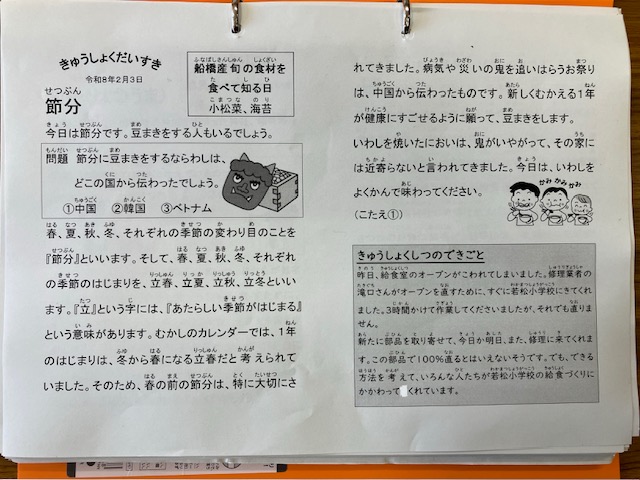 きゅうしょくだいすき
令和8年2月3日
船橋産旬の食材を
食べて知る日
小松菜、海苔
節分
今日は節分です。豆まきをする人もいるでしょう。
問題 節分に豆まきをするならわしは、
どこの国から伝わったでしょう。
①中国 ②韓国 ③ベトナム
春、夏、秋、冬、それぞれの季節の変わり目のことを
『節分』といいます。そして、春、夏、秋、冬、それぞれ
の季節のはじまりを、立春、立夏、立秋、立冬といい
ます。『立』という字には、『あたらしい季節がはじまる』
という意味があります。むかしのカレンダーでは、1年
のはじまりは、冬から春になる立春だと考えられて
いました。そのため、春の前の節分は、特に大切にさ
れてきました。病気や災いの鬼を追いはらうお祭り
は、中国から伝わったものです。新しくむかえる1年
が健康にすごせるように願って、豆まきをします。
いわしを焼いたにおいは、鬼がいやがって、その家に
は近寄らないと言われてきました。今日は、いわしを
よくかんで味わってください。
(こたえ①)
かみかみかみ
きゅうしょくしつのできごと
昨日、給食室のオーブンがこわれてしまいました。修理業者の
滝口さんがオーブンを直すために、すぐに若松小学校にきてくれ
ました。3時間かけて作業してくださいましたが、それでも直りま
せん。
新たに部品を取り寄せて、今日か明日、また、修理に来てくれま
す。この部品で100%直るとはいえないそうです。でも、できる
方法を考えて、いろんな人たちが若松小学校の給食づくりに
かかわって くれています。